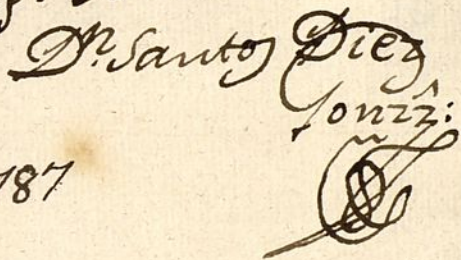 Dn. Santos Diez
Gonzz:
187